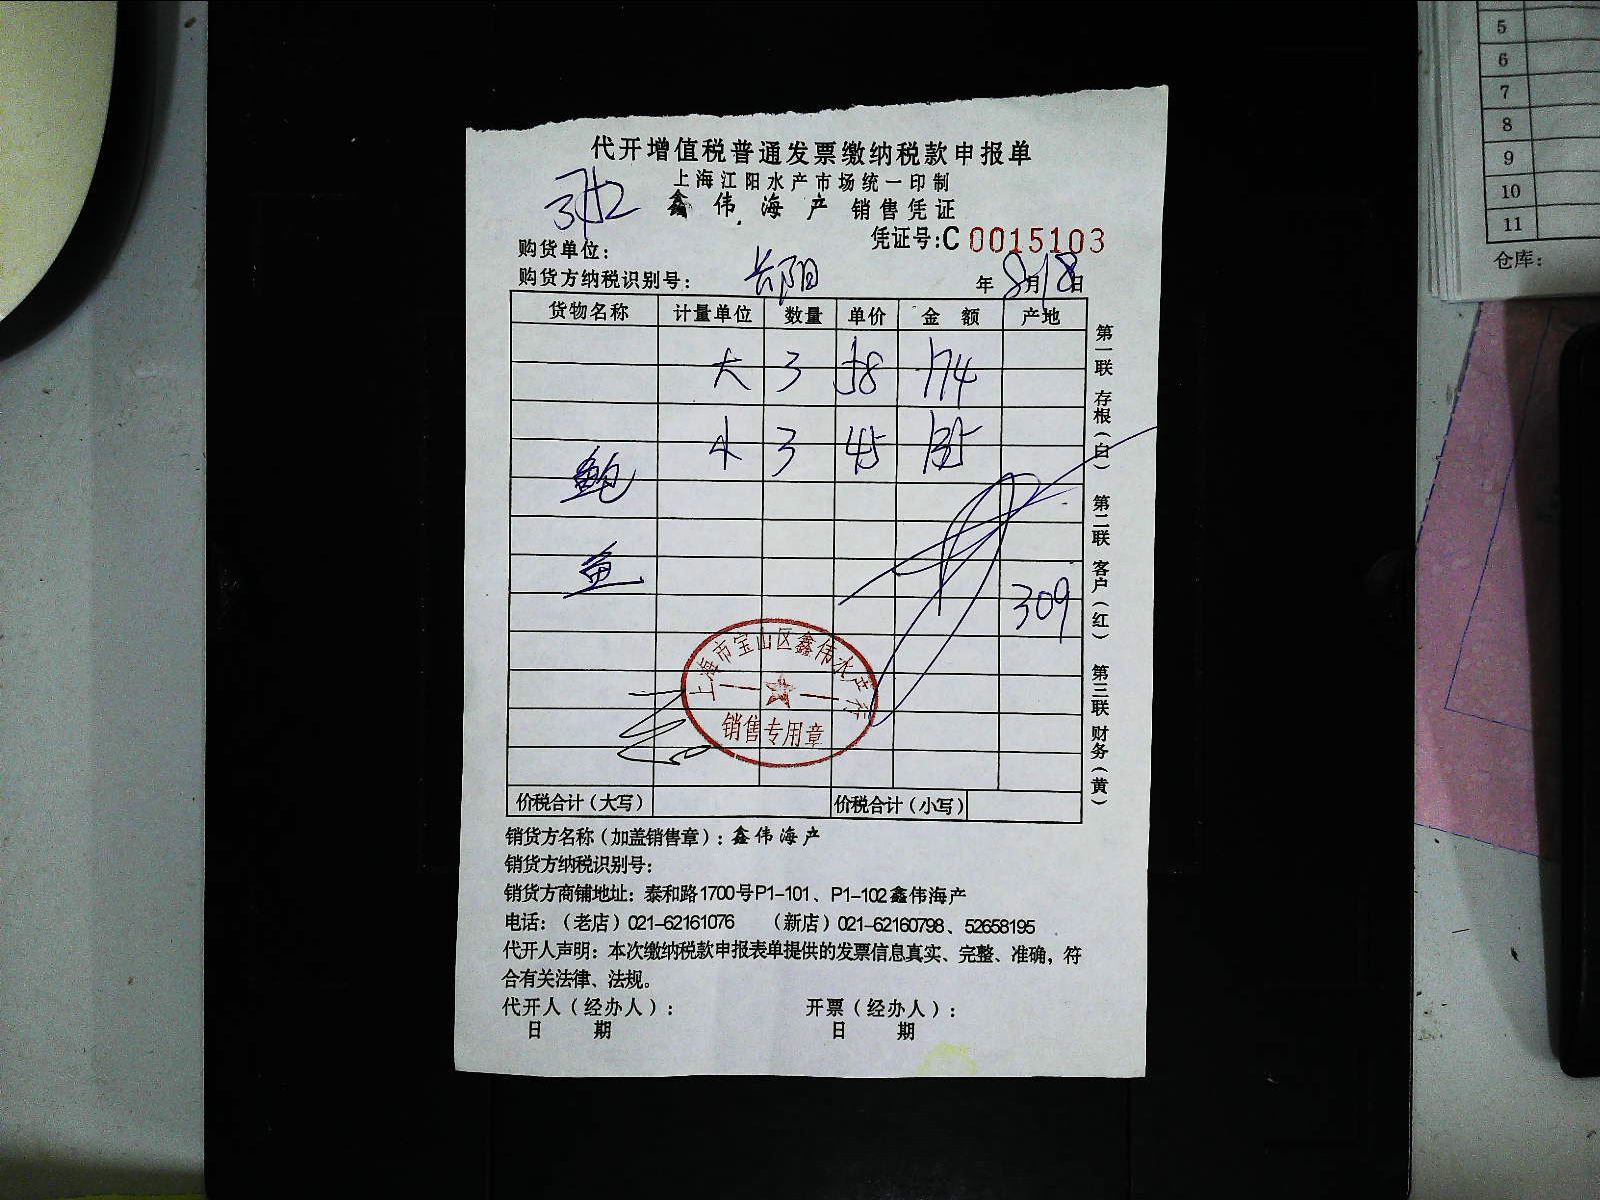 代开增值税普通发票缴纳税款申报单
上海江阳水产市场统一印制
鑫伟海产 销售凭证
凭证号:C 0015103
购货单位:
购货方纳税识别号: 长阳 年 8月18日
货物名称 计量单位 数量 单价 金 额 产地
大 3 58 174
小 3 45 135
鲍
鱼
309
上海市宝山区鑫伟水产行
销售专用章
价税合计(大写) 价税合计(小写)
销货方名称(加盖销售章):鑫伟海产
销货方纳税识别号:
销货方商铺地址:泰和路1700号P1-101、P1-102鑫伟海产
电话:(老店)021-62161076 (新店)021-62160798、52658195
代开人声明:本次缴纳税款申报表单提供的发票信息真实、完整、准确,符
合有关法律、法规。
代开人(经办人): 开票(经办人):
日 期 日 期
第一联 存根(白) 第二联 客户(红) 第三联 财务(黄)
5
6
7
8
9
10
11
仓库: